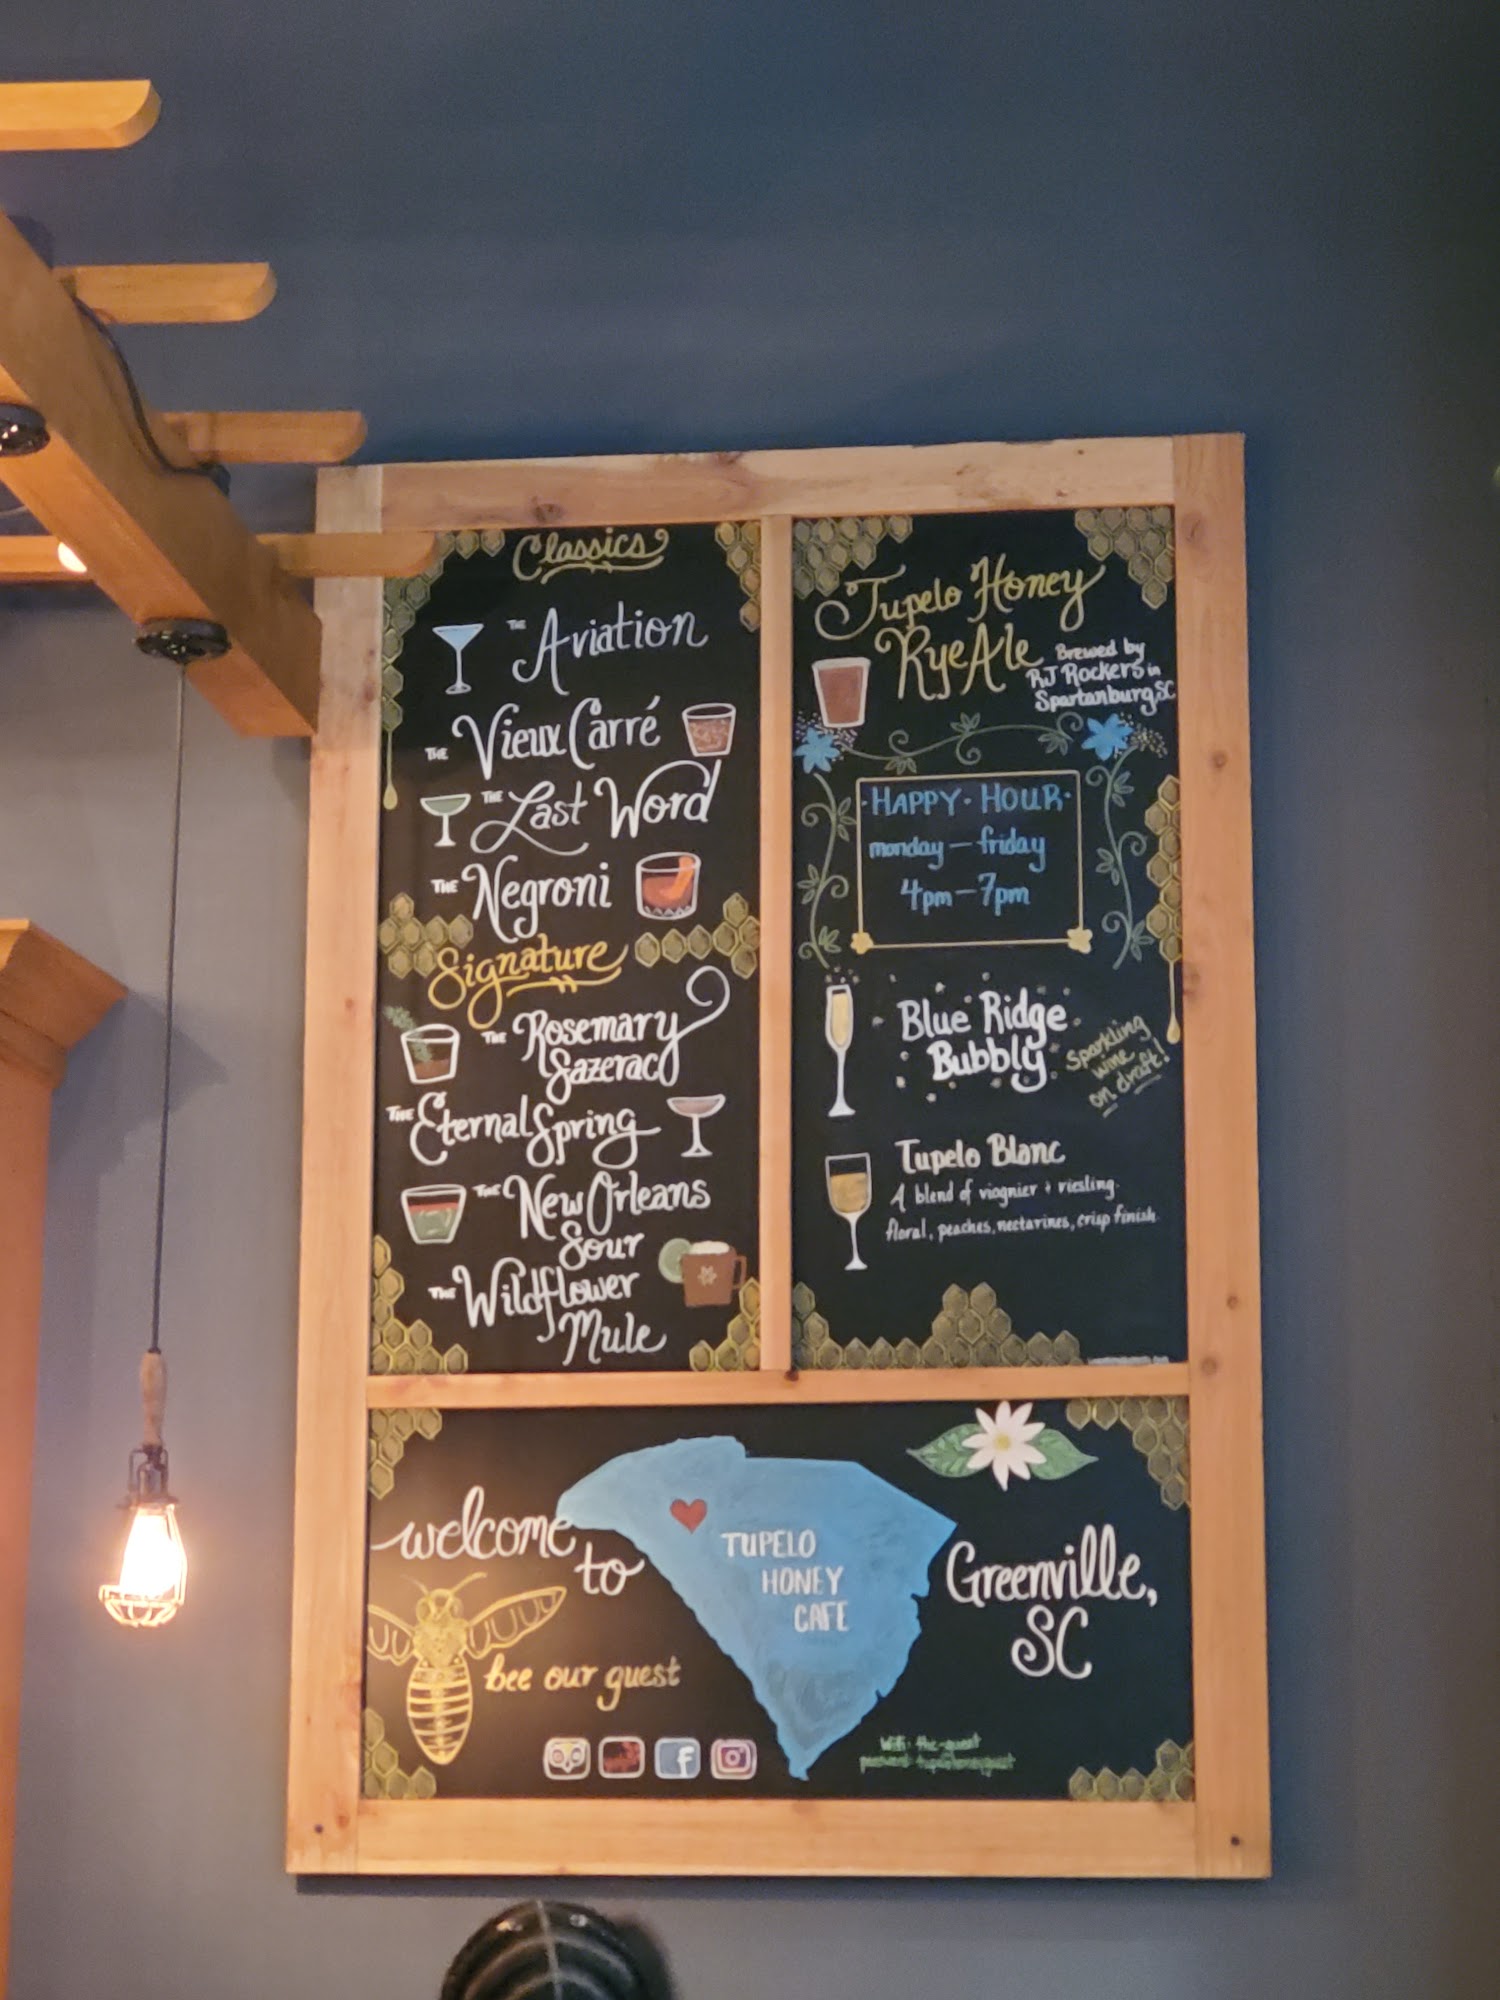 Classics
THE Aviation
THE Vieux Carré
THE Last Word
THE Negroni
Signature
THE Rosemary
Sazerac
THE Eternal Spring
THE New Orleans
Sour
THE Wildflower
Mule
Tupelo Honey
Rye Ale
Brewed by
RJ Rockers in
Spartanburg, SC
·HAPPY·HOUR·
monday — friday
4pm — 7pm
Blue Ridge
Bubbly
Sparkling
wine
on draft!
Tupelo Blanc
A blend of viognier + riesling.
floral, peaches, nectarines, crisp finish.
welcome
to
TUPELO
HONEY
CAFE
Greenville,
SC
bee our guest
f
Wifi: the-guest
password: tupelohoneyguest